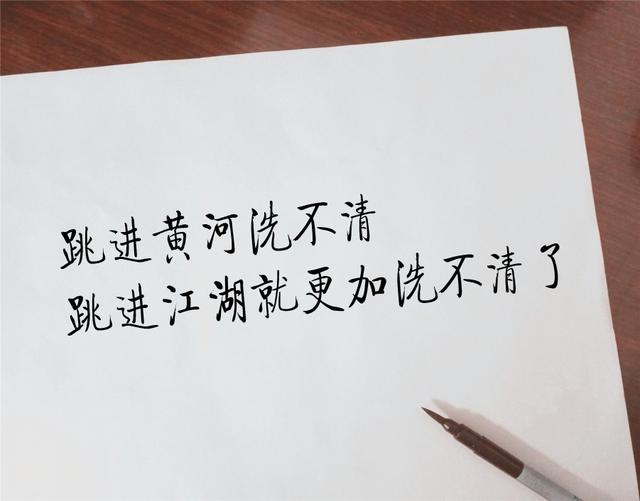 跳进黄河洗不清
跳进江湖就更加洗不清了